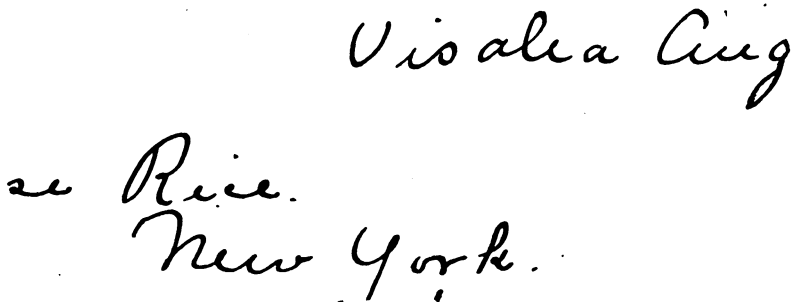 Visalia Aug
se Rice.
New York.